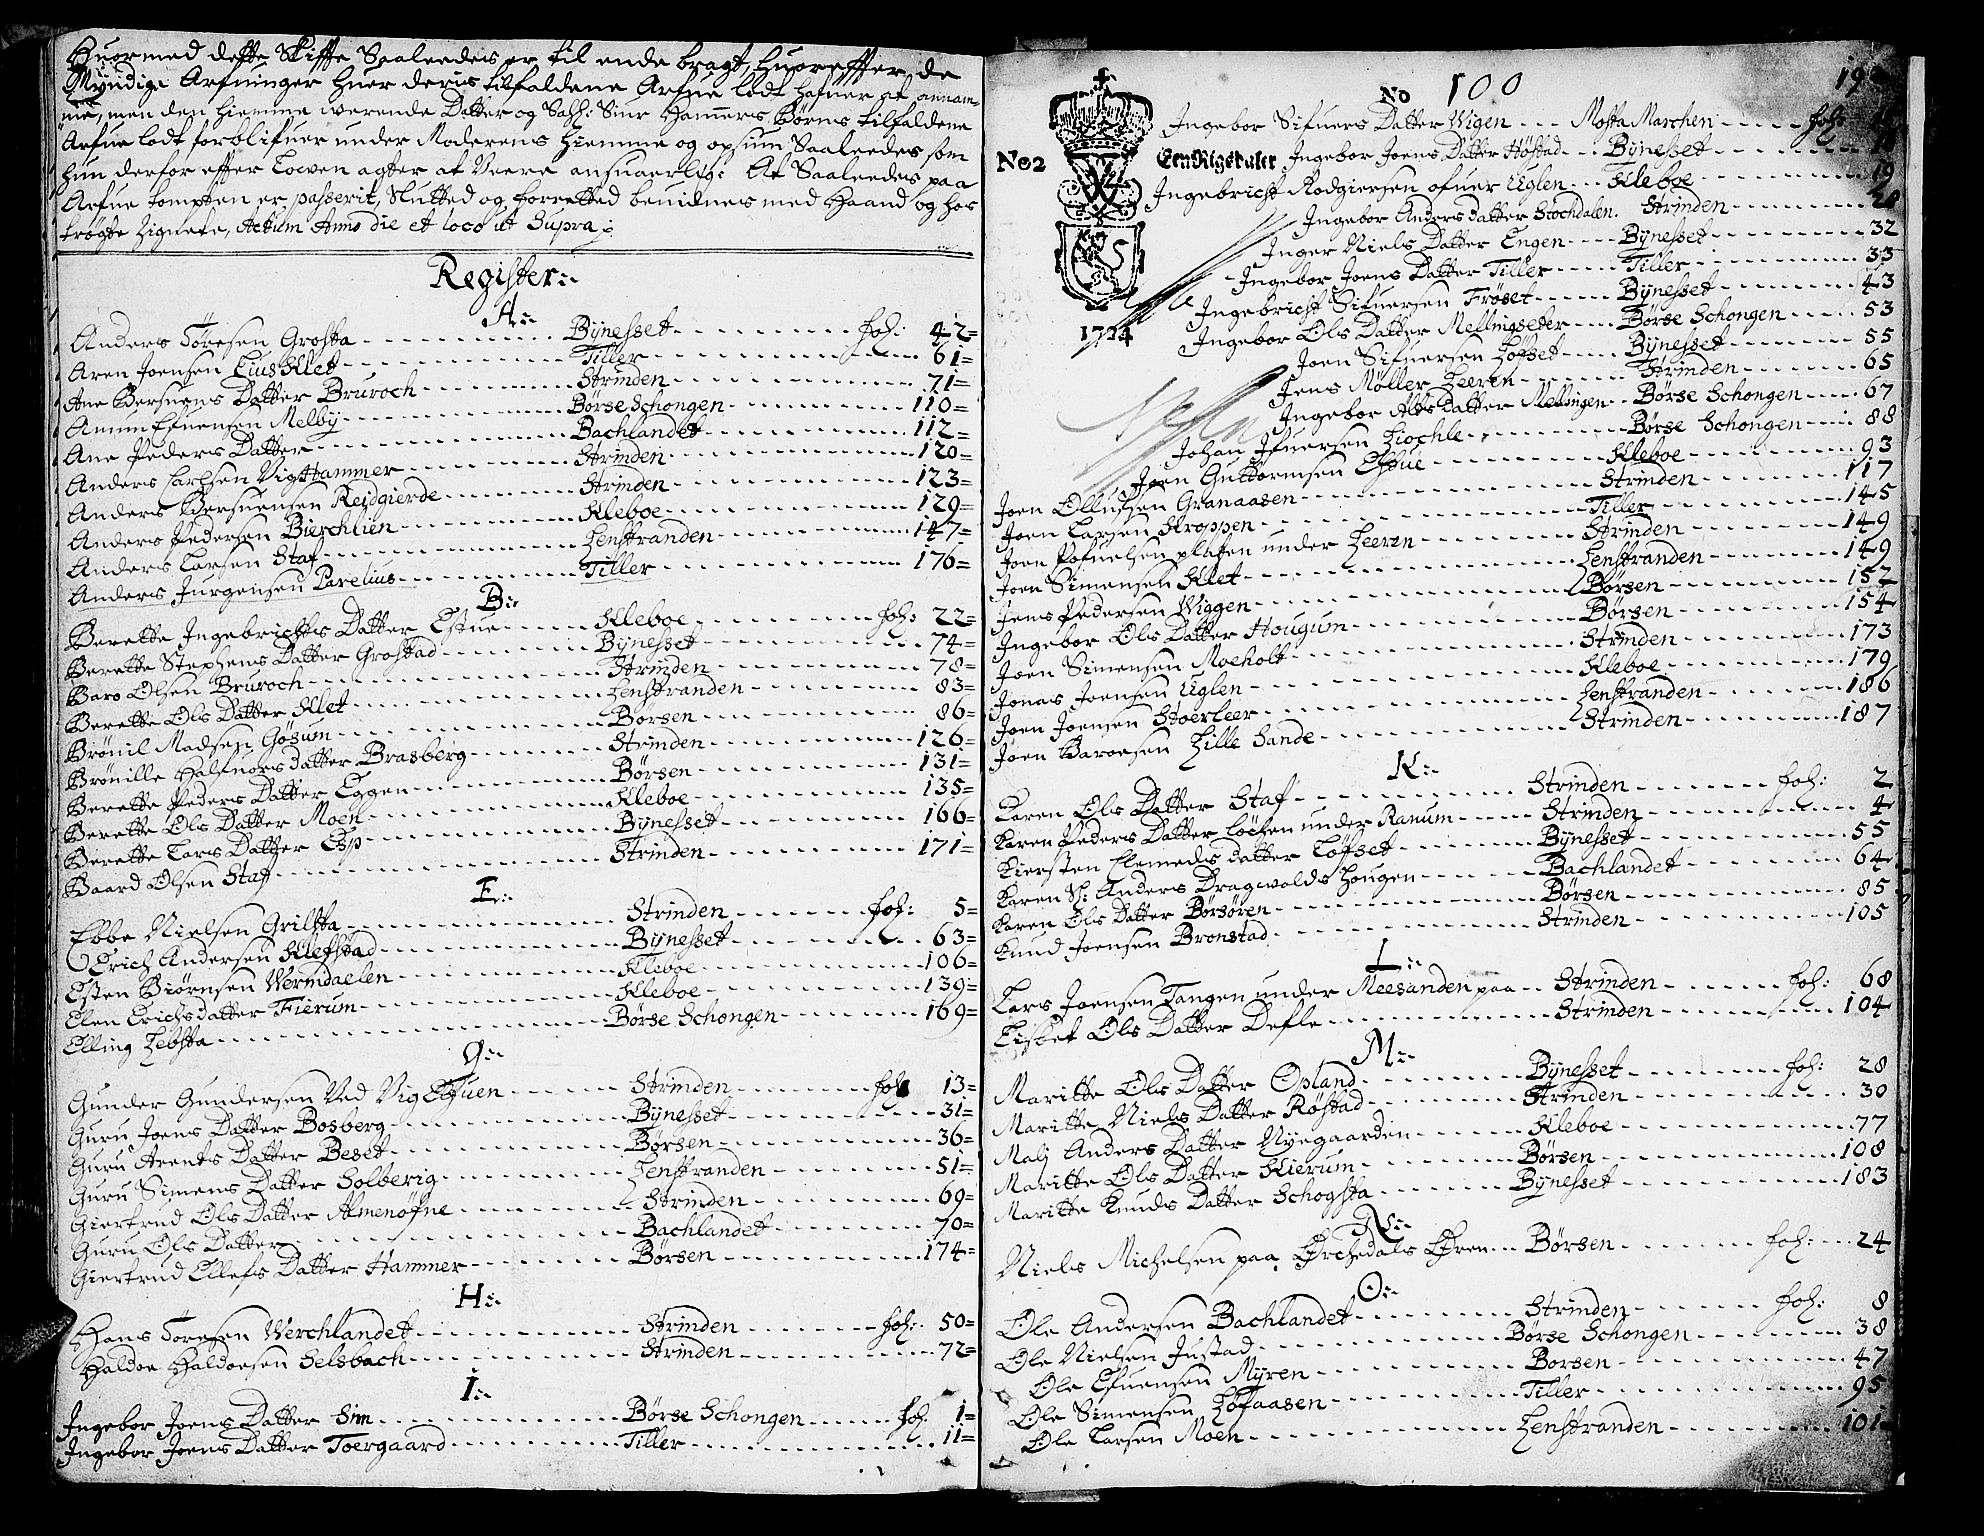 Huormed dette Skiffte Saaledes er til ende bragt, huoreffter de
Myndige Arfninger huer deris tilfaldene Arfue lodt hafuer at annam-
me, men den hiemme werende Datter og Sahl: Siur Hamers Børns tilfaldene
Arfue lodt forblifuer under Moderens hiemme og opsiun Saaleedes som
hun derfor effter Lowen agter at Veere ansuaerlig: At Saaleedes paa
Arfue tompten er passerit, Slutted og forretted beuidnes med Haand og hos
trøgte Zignete, Actum Anno die et loco ut Supra
Register
A
Anders Tøresen Grosta Bÿnesset fol: 42
Aren Joensen Eiusklet Tiller 61
Ane Bersuens Datter Bruroch Strinden 71
Amun Efuensen Melbÿ Børse Schongen 110
Ane Peders Datter Bachlandet 112
Anders Carlsen Vighammer Strinden 120
Anders Bersuensen Reidgierde Strinden 123
Anders Pedersen Bierchlien Kleboe 129
Anders Larsen Staf Lenstranden 147
Anders Jurgensen Parelius Tiller 176
B
Berette Ingebrichts Datter Estue Kleboe fol: 22
Berette Stephens Datter Grostad Bÿnesset 74
Baro Olsen Bruroch Strinden 78
Berette Ols Datter Klet Lenstranden 83
Brønil Madsen Gøsum Børsen 86
Brønille Halfuors datter Brasberg Strinden 126
Berette Peders Datter Eggen Børsen 131
Berette Ols Datter Moen Kleboe 135
Berette Lars Datter Esp Bÿnesset 166
Baard Olsen Staf Strinden 171
E
Ebbe Nielsen Grilsta Strinden fol: 5
Erich Andersen Klefstad Bÿnesset 63
Esten Biørnsen Wermdaelen Kleboe 106
Elen Erichsdatter Fierum Kleboe 139
Elling Lebsta Børse Schongen 169
G
Gunder Gundersen Ved Vig Elfuen Strinden fol 13
Guru Joens Datter Bosberg Bÿnesset 31
Guru Arents Datter Beset Børsen 36
Guru Simens Datter Solberig Lenstranden 51
Giertrud Ols Datter Almenøfne Strinden 69
Guru Ols Datter Bachlandet 70
Giertrud Ellefs Datter Hammer Børsen 174
H
Hans Toresen Werchlandet Strinden fol: 50
Haldoe Haldoesen Selsbach Strinden 72
I
Ingebor Joens Datter Sim Børse Schongen fol. 1
Ingebor Joens Datter Toergaard Tiller 11
No 100
Ingebor Sifuers Datter Wigen Mosta Marchen fol:
No 2 Een Rigsdaler Ingebor Joens Datter Høstad Bÿnesset
Ingebricht Rodgiersen ofuer Uglen Kleboe 19
Ingebor Anders datter Stochdalen Strinden
Inger Niels Datter Engen Bÿnesset 32
Ingebor Joens Datter Tiller Tiller 33
Ingebricht Sifuersen Frøset Bÿnesset 43
1724 Ingebor Ols Datter Mellingseter Børse Schongen 53
Joen Sifuersen Løfset Bÿnesset 55
Jens Møller Leeren Strinden 65
Ingebor Alfs Datter Mellingen Børse Schongen 67
Johan Ifuersen Liochle Børse Schongen 88
Joen Guttormsen Estue Kleboe 93
Joen Ollufsen Granaasen Strinden 117
Joen Larsen Kroppen Tiller 145
Joen Pofuelsen platen under Leeren Strinden 149
Joen Simensen Klet Lenstranden 149
Jens Pedersen Wiggen Børsen 152
Ingebor Ols Datter Hougum Børsen 154
Joen Simensen Moeholt Strinden 173
Jonas Joensen Uglen Kleboe 179
Joen Joensen Stoerleer Lenstranden 186
Joen Baroesen Lille Sande Strinden 187
K
Karen Ols Datter Staf Strinden fol: 2
Karen Peders Datter Løchen under Ranum Strinden 4
Kiersten Clemeds datter Løfset Bÿnesset 55
Karen Sl: Anders Dragwolds Hougen Bachlandet 64
Karen Ols Datter Børsøren Børsen 85
Knud Joensen Bronstad Strinden 105
L
Lars Joensen Tangen under Meesanden paa Strinden fol: 68
Lisbet Ols Datter Defle Strinden 104
M
Maritte Ols Datter Opland Bÿnesset fol: 28
Maritte Niels Datter Røstad Strinden 30
Mali Anders Datter Nyegaarden Kleboe 77
Maritte Ols Datter Kierum Børsen 108
Maritte Knuds Datter Schogsta Bÿnesset 183
N
Niels Michelsen paa Ørchedals Øren Børsen fol: 24
O
Ole Andersen Bachlandet Strinden fol: 8
Ole Nielsen Justad Børse Schongen 38
Ole Efuensen Mÿren Børsen 47
Ole Simensen Løfaasen Tiller 95
Ole Larsen Moen Lenstranden 101